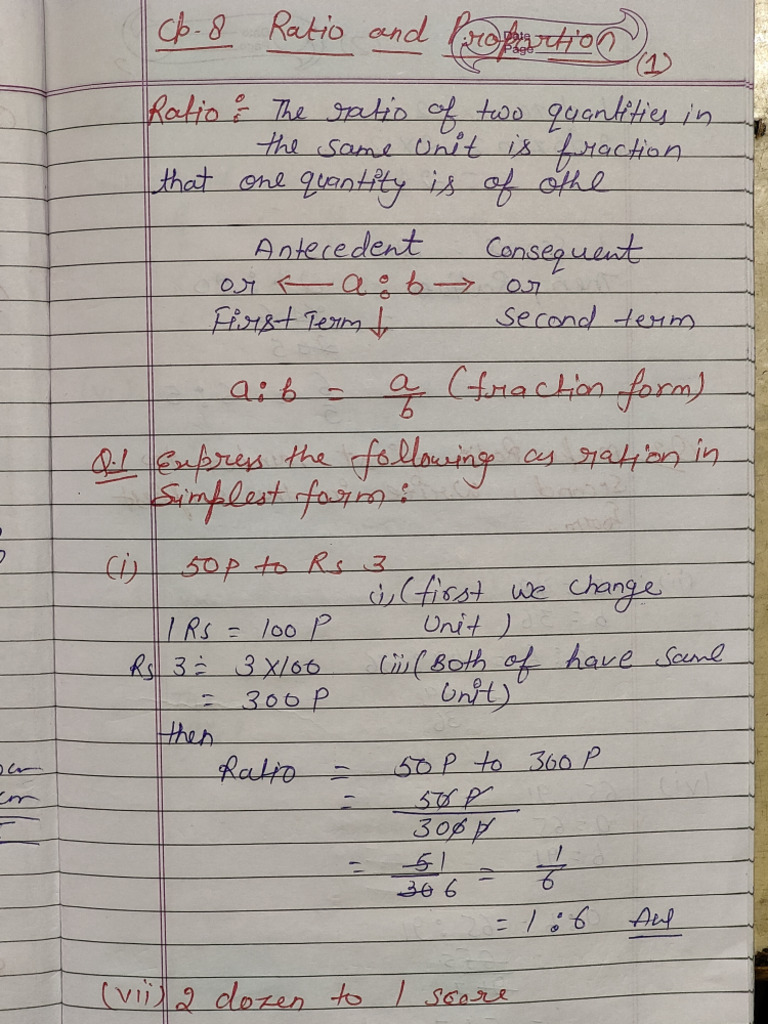 Ch-8 Ratio and Proportion
Date
Page
(1)
Ratio :- The ratio of two quantities in
the same unit is fraction
that one quantity is of othe
Antecedent Consequent
or ← a : b → or
First Term ↓ second term
a : b = a/b (fraction form)
Q.1 Express the following as ration in
Simplest form :
(i) 50P to Rs 3
i, (first we change
1 Rs = 100 P Unit )
Rs 3 = 3 X 100 (ii, (Both of have same
= 300 P Unit)
then
Ratio = 50P to 300 P
= 50 P / 300 P
= 5 1 / 30 6 = 1/6
= 1 : 6 Ans
(vii) 2 dozen to 1 score
cm